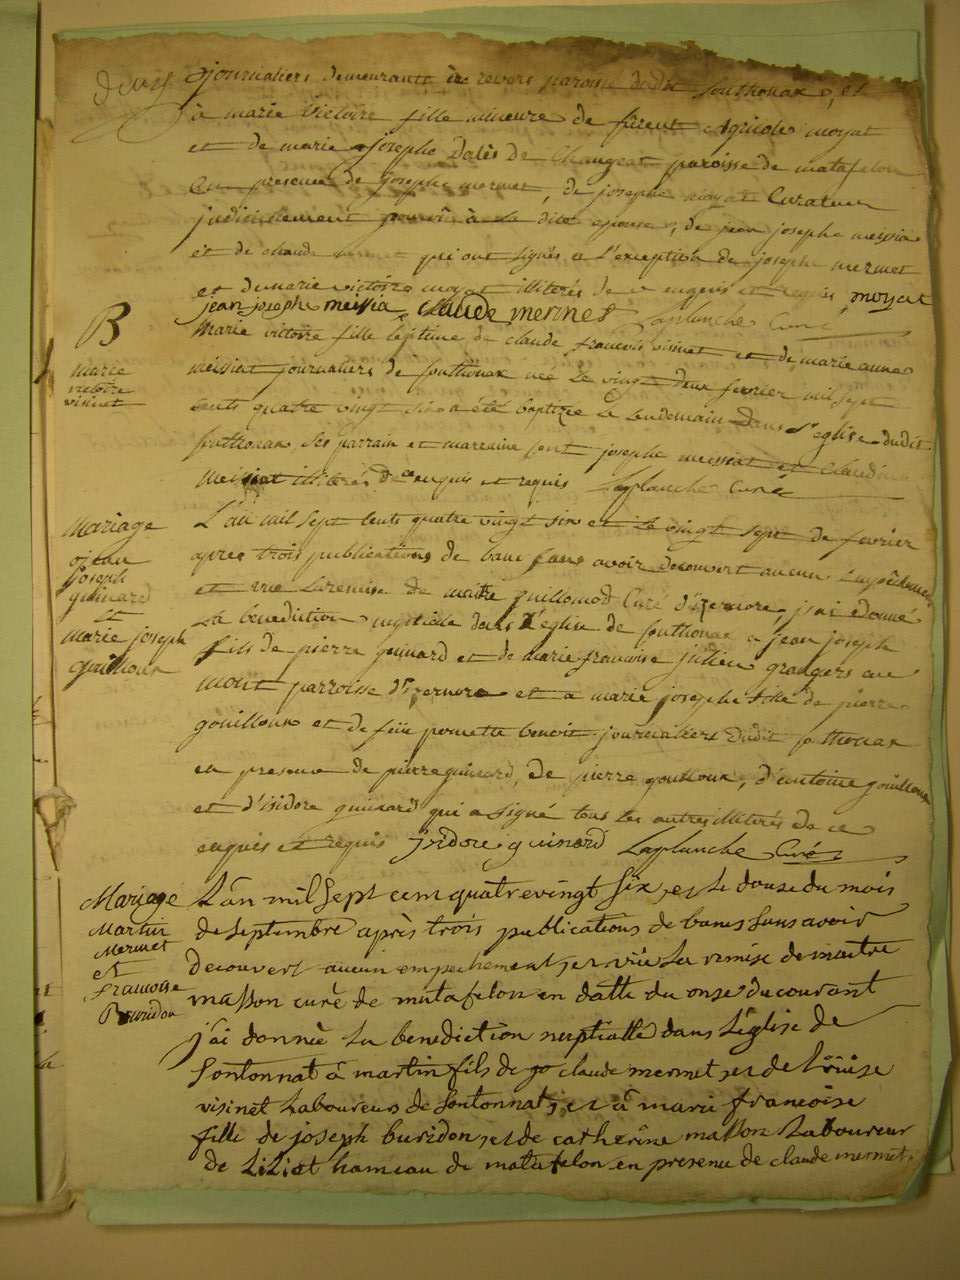 journaliers demeurants à revers paroisse dudit southonax, et
à marie victoire fille mineure de feu agricole moyat
et de marie josephe Dalès de Changeat paroisse de matafelon
En presence de josephe mermet, de josephe moyat Curateur
judiciellement pourvû à la dite epouse, de jean josephe meissia
et de claude mermet qui ont signés a l'exception de joseph mermet
et de marie victoire moyat illiterés de ce enquis et requis moyat
jean joseph meissia Claude mermet Laplanche Curé
B
marie
victoire
visinet
Marie victoire fille légitime de claude francois visinet et de marie anne
meissiat journaliers de southonax née le vingt deux fevrier mil sept
cents quatre vingt six a été baptizée le lendemain dans l'eglise dudit
southonax, ses parrain et marraine sont josephe meissiat et claudine
meissiat illiterés de ce enquis et requis Laplanche Curé
Mariage
jean
joseph
guinard
Et
marie joseph
gouilloux
L'an mil sept cents quatre vingt six et le vingt sept de fevrier
après trois publications de banc sans avoir decouvert aucun Empêchement
et vue la remise de maitre guillomod Curé d'izernore, j'ai donné
La benediction nuptialle dans l'église de southonax a jean joseph
fils de pierre guinard et de marie francoise julien grangers au
mont parroisse d'izernore et a marie josephe fille de pierre
gouilloux et de feüe pernette benoit journaliers dudit southonax
en presence de pierre guinard, de pierre gouilloux, d'antoine gouilloux
et d'isidore guinard qui a signé tous les autres illiterés de ce
enquis et requis jsidore guinard Laplanche Curé
Mariage
Martin
Mermet
et
francoise
Buridon
L'an mil sept cent quatrevingt six, et le douse du mois
de septembre après trois publications de bancs sans avoir
decouvert aucun empechement, et vüe la remise de maitre
masson curé de matafelon en datte du onse du courant
j'ai donnée la benediction nuptialle dans l'église de
sontonnat à martin fils de claude mermet, et de loüise
visinet Laboureurs de sontonnat, et à marie francoise
fille de joseph buridon, et de catherine masson Laboureur
de Liliat hameau de matafelon en presence de claude mermet